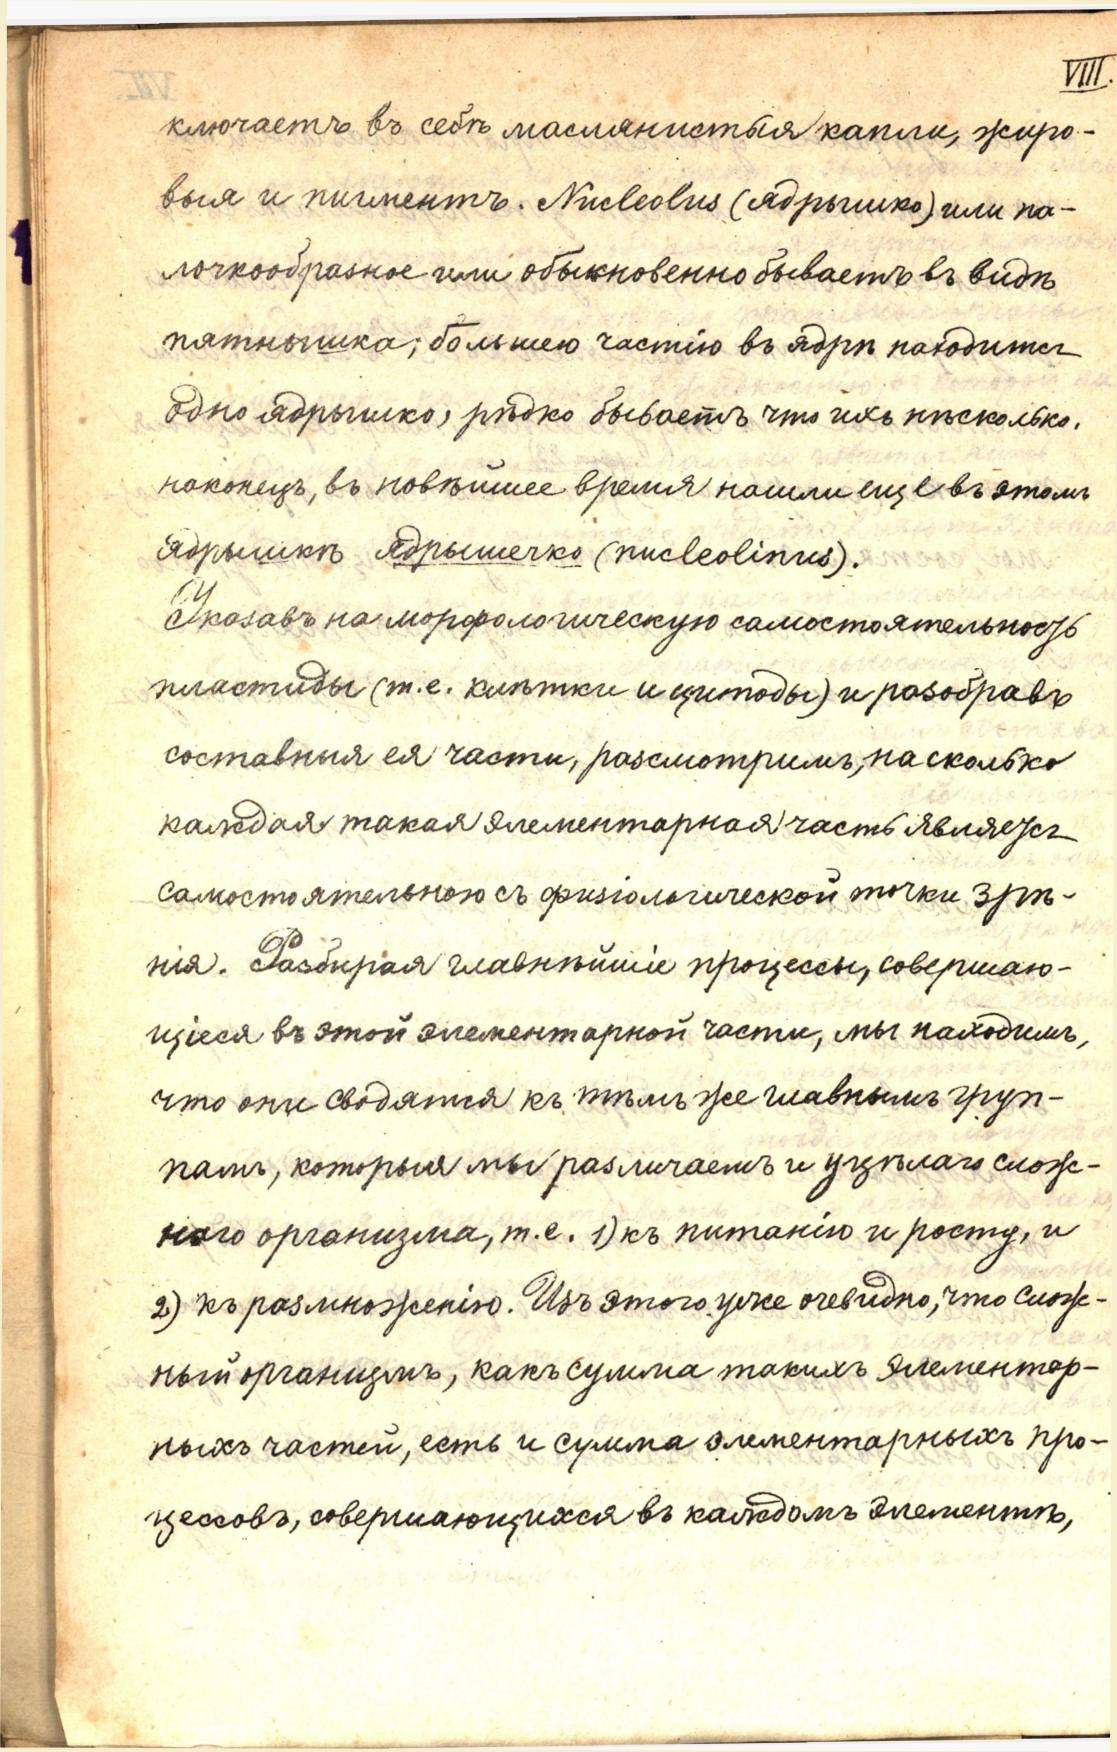 VIII.
ключаетъ въ себѣ маслянистыя капли, жиро-
выя и пигментъ. Nucleolus (ядрышко) или па-
лочкообразное или обыкновенно бываетъ въ видѣ
пятнышка; большею частію въ ядрѣ находится
одно ядрышко, рѣдко бываетъ что ихъ нѣсколько.
наконецъ, въ новѣйшее время нашли еще въ этомъ
ядрышкѣ ядрышечко (nucleolinus).
Указавъ на морфологическую самостоятельность
пластиды (т.е. клѣтки и цитоды) и разобравъ
составныя ея части, разсмотримъ, на сколько
каждая такая элементарная часть является
самостоятельною съ физіологической точки зрѣ-
нія. Разбирая главнѣйшіе процессы, совершаю-
щіеся въ этой элементарной части, мы находимъ,
что они сводятся къ тѣмъ же главнымъ груп-
памъ, которыя мы различаемъ и у цѣлаго слож-
наго организма, т.е. 1) къ питанію и росту, и
2) къ размноженію. Изъ этого уже очевидно, что слож-
ный организмъ, какъ сумма такихъ элементар-
ныхъ частей, есть и сумма элементарныхъ про-
цессовъ, совершающихся въ каждомъ элементѣ,